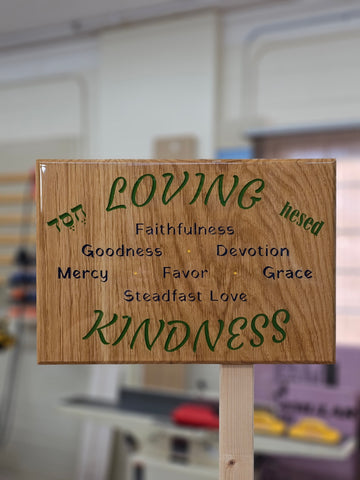 LOVING
חֶסֶד
hesed
Faithfulness
Goodness · Devotion
Mercy · Favor · Grace
Steadfast Love
KINDNESS